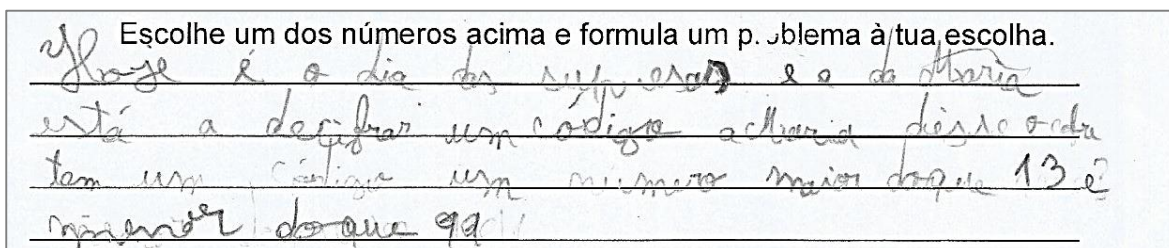 Escolhe um dos números acima e formula um problema à tua escolha.
Hoje é o dia das surpresas e o da Maria
está a decifrar um código a Maria
tem um código um número maior do que 13 e
menor do que 99